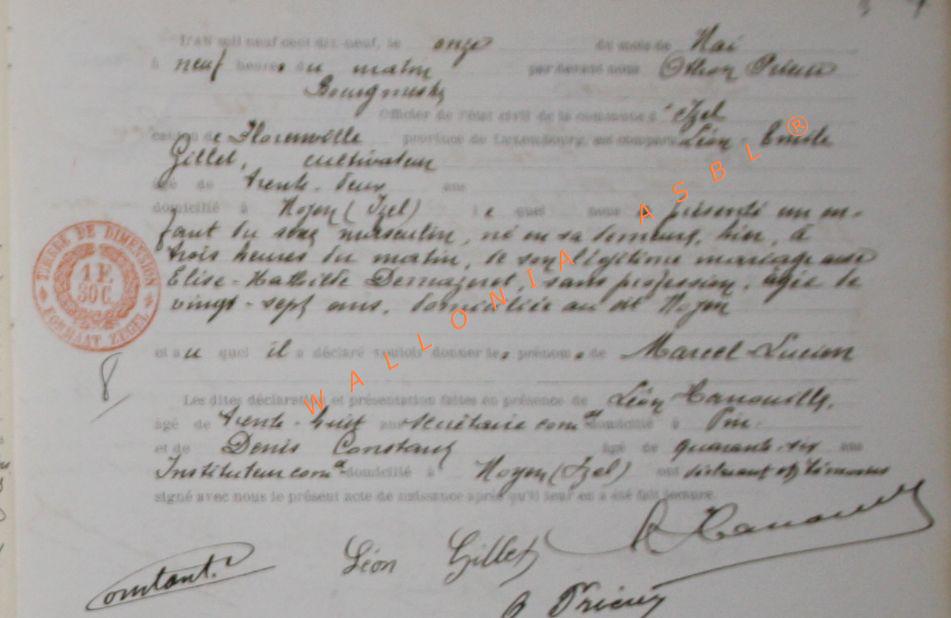 L'AN mil neuf cent dix-neuf, le onze du mois de Mai
à neuf heures du matin par devant nous Othon Prieur
Bourgmestre
Officier de l'état civil de la commune d'Izel
canton de Florenville province de Luxembourg, est comparu Léon-Emile
Gillet, cultivateur
âgé de trente-deux ans
domicilié à Moyen (Izel) lequel nous a présenté un en-
fant du sexe masculin, né en sa demeure, hier, à
trois heures du matin, de son légitime mariage avec
Elise-Mathilde sans profession, âgée de
vingt-sept ans, domiciliée au dit Moyen
et auquel il a déclaré vouloir donner les prénoms de Marcel-Lucien
Les dites déclaration et présentation faites en présence de Léon
âgé de trente-huit ans secrétaire comal domicilié à Pin
et de Denis Constant âgé de quarante-six ans
Instituteur comal domicilié à Moyen (Izel) ont déclarant et témoins
signé avec nous le présent acte de naissance après qu'il leur en a été fait lecture.
8
TIMBRE DE DIMENSION
1 F.
30 C.
FORMAAT ZEGEL
WALLONIA ASBL ®
Constant. Léon Gillet
Prieur